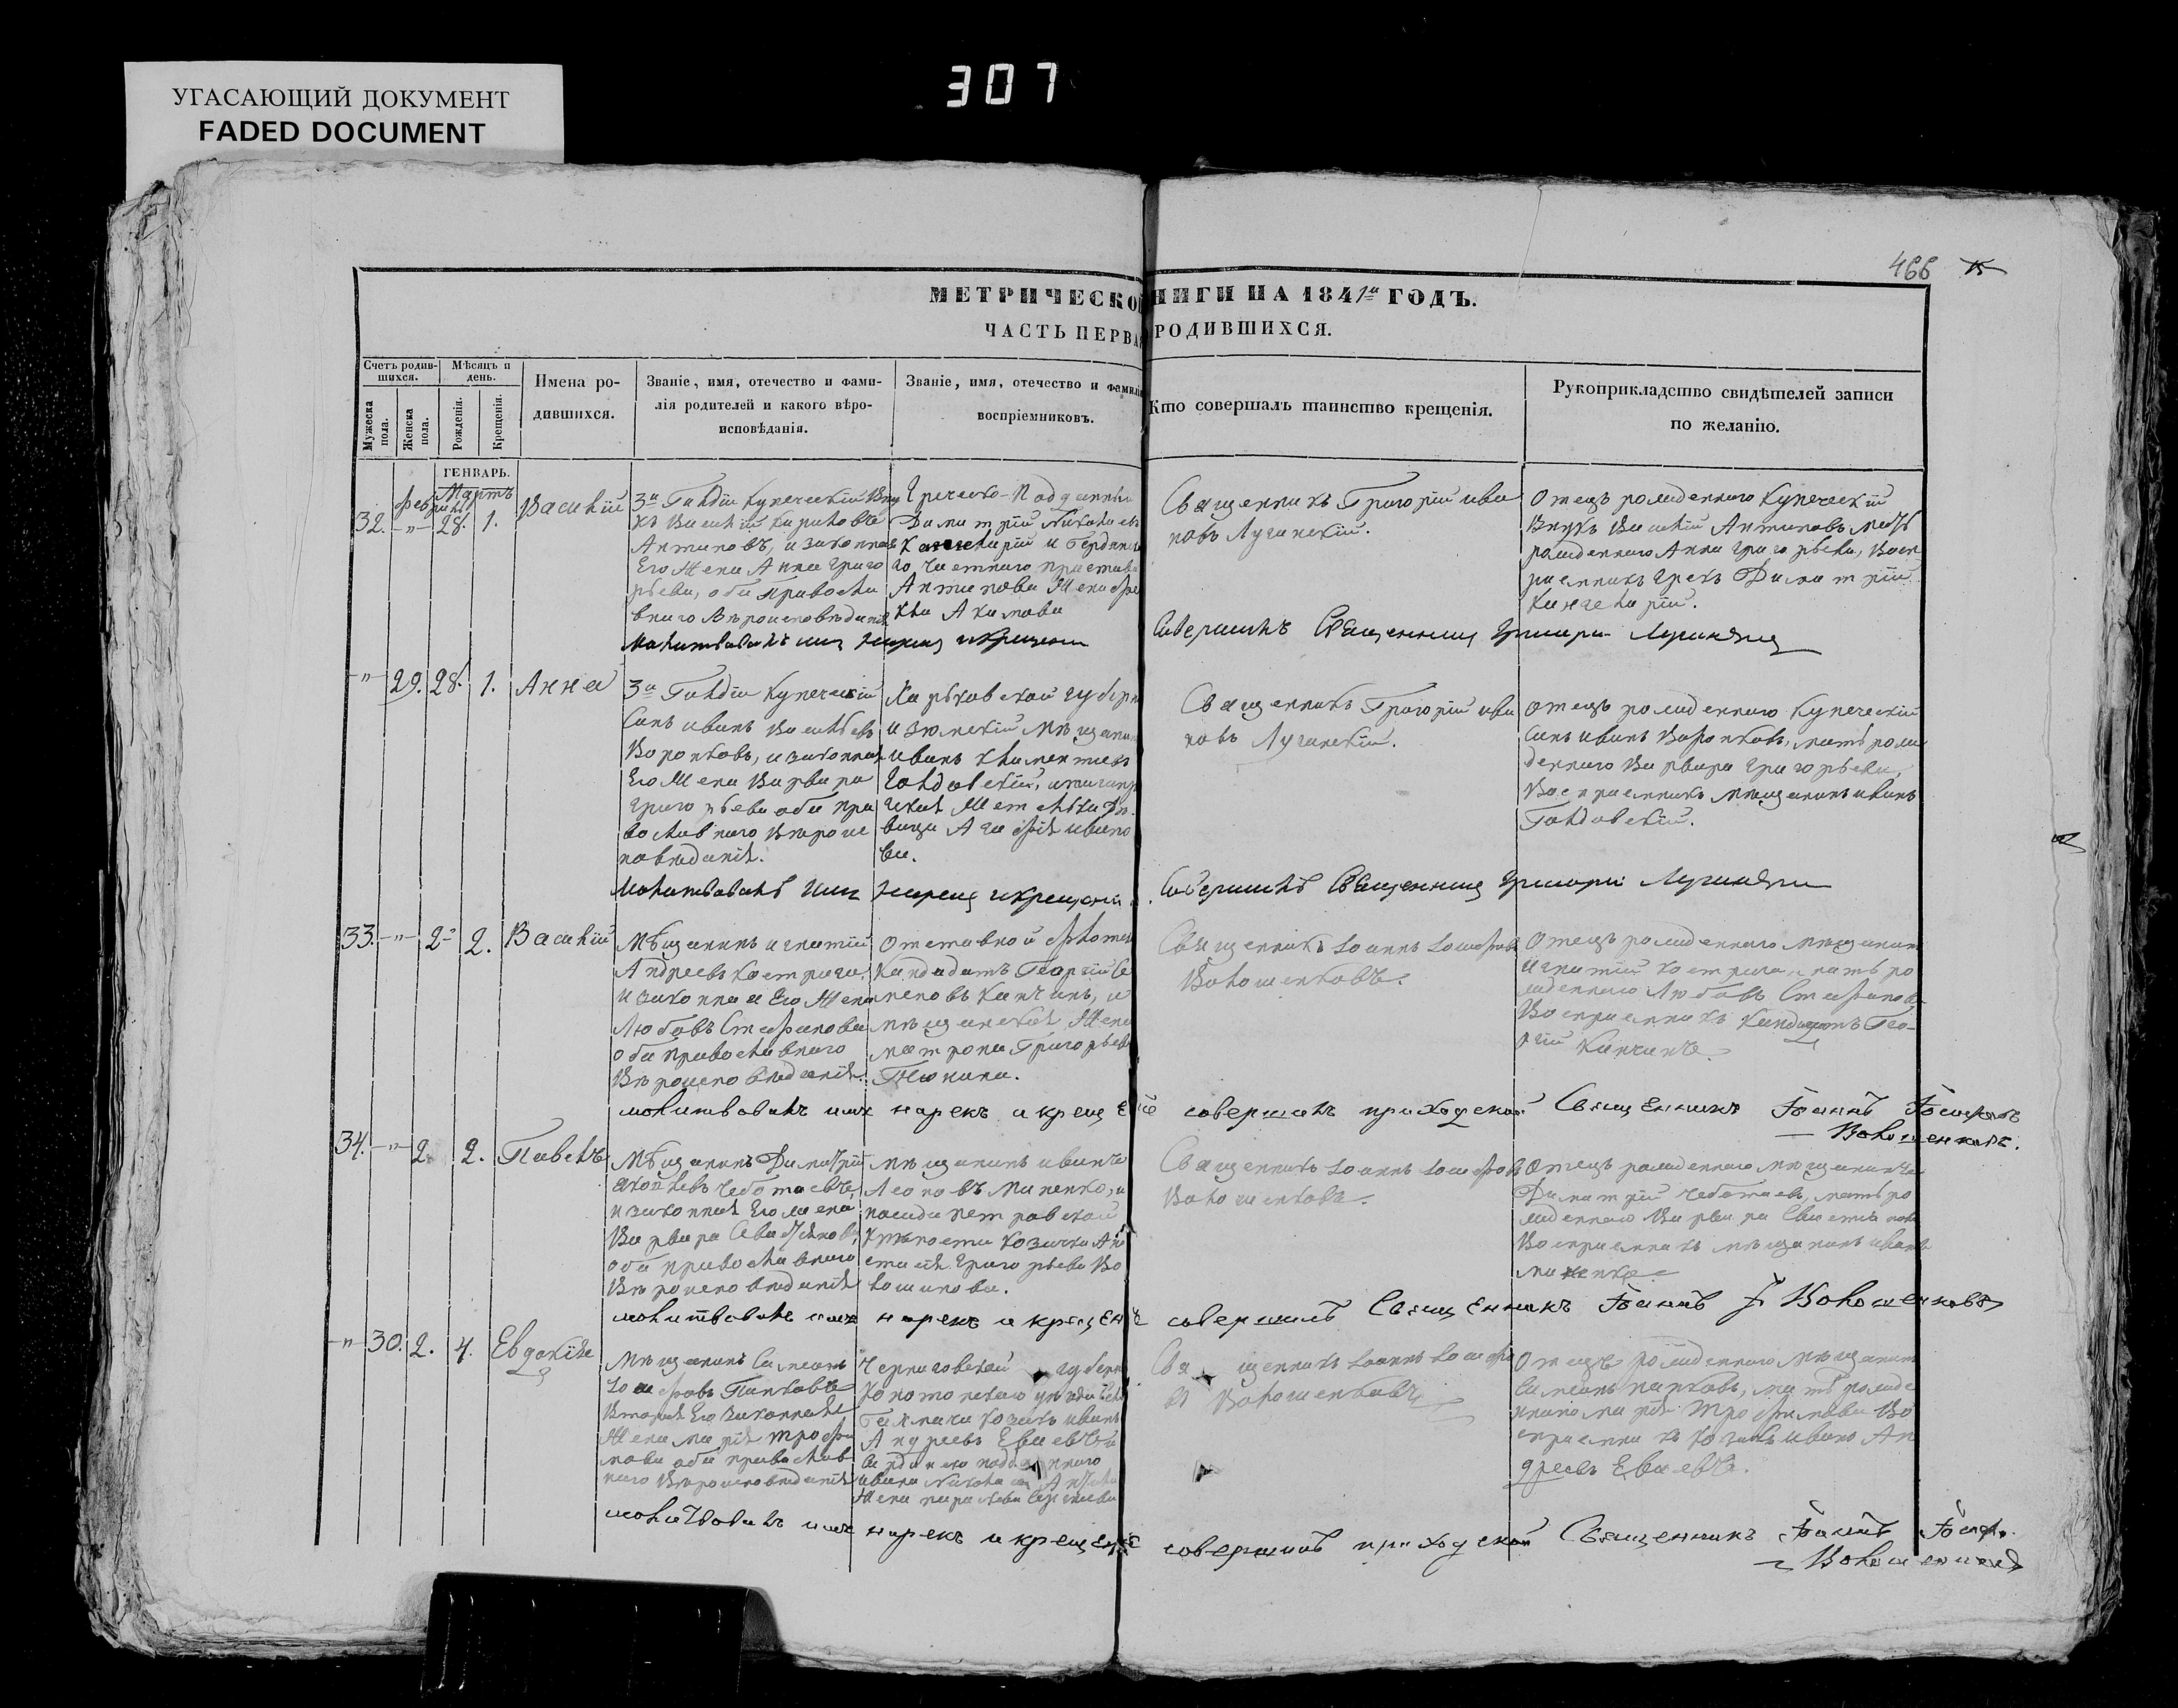 307
УГАСАЮЩИЙ ДОКУМЕНТ
FADED DOCUMENT
466
МЕТРИЧЕСКОЙ КНИГИ НА 1841й ГОДЪ.
ЧАСТЬ ПЕРВАЯ РОДИВШИХСЯ.
Счетъ родив-
шихся.
Мужеска
пола.
Женска
пола.
Мѣсяцъ и
день.
Рожденія.
Крещенія.
Имена ро-
дившихся.
Званіе, имя, отечество и фами-
лія родителей и какого вѣро-
исповѣданія.
Званіе, имя, отечество и фамилія
воспріемниковъ.
Кто совершалъ таинство крещенія.
Рукоприкладство свидѣтелей записи
по желанію.
ГЕНВАРЬ.
Мартъ
32. —"— 28. 1. Василій
3й Гильдіи Купеческій Вну
къ Василій Кириловъ
Антиповъ, и законная
Его Жена Анна Григо
рьева, оба Правосла
внаго Вѣроисповѣданія
Греческо-Подданный
Димитрій Николаевъ
Антипова Жена
Акимова
Священникъ Григорій ива
новъ Лучинскій.
Отецъ рожденнаго Купеческій
Внукъ Василій Антиповъ мать
рожденнаго Анна Григорьева, Восп
риемникъ Грекъ Димитрій
Молитвовалъ имя нарекъ и крещеніе Совершилъ Священникъ Григорій Лучинскій
—"— 29. 28. 1. Анна
3й Гильдіи Купеческій
Сынъ иванъ Васильевъ
Воронковъ, и законная
Его Жена Варвара
Григорьева оба пра
вославнаго Вѣроис
повѣданія.
Харьковской губерн
изюмскій мѣщанин
иванъ Климентіевъ
Голдовскій,
ивано
ва.
Священникъ Григорій ива
новъ Лучинскій.
Отецъ рожденнаго Купеческій
Сынъ иванъ Воронковъ, мать рож
деннаго Варвара Григорьева,
Восприемникъ мѣщанинъ иванъ
Голдовскій.
Молитвовалъ Имя нарекъ и крещеніе Совершилъ Священникъ Григорій Лучинскій
33. —"— 2. 2. Василій
Мѣщанинъ игнатій
Андреевъ Кострига,
и законная Его Жена
Любовъ Стефанова
оба православнаго
Вѣроисповѣданія.
Отставной
Кандидатъ Георгій Се
меновъ Капчинъ, и
мѣщанская Жена
матрона Григорьева
Священникъ Іоаннъ Іосифовъ
Волошенковъ.
Отецъ рожденнаго мѣщанин
Игнатій Кострига, мать ро
жденнаго Любовъ Стефанов
Восприемникъ Кандидатъ Гео-
ргій Капчинъ.
молитвовалъ имя нарекъ и крещеніе совершилъ приходской Священникъ Іоаннъ Іосифовъ
Волошенковъ.
34. —"— 2. 2. Павелъ
Мѣщанинъ Димитрій
Чеботаевъ,
и законная Его жена
Варвара
оба православнаго
Вѣроисповѣданія
мѣщанинъ иванъ
Леоновъ Миненко, и
посада петровской
Крѣпости Козачка Ана
стасія Григорьева Во
лошинова.
Священникъ Іоаннъ Іосифовъ
Волошенковъ.
Отецъ рожденнаго мѣщанинъ
Димитрій Чеботаевъ, мать ро
жденнаго Варвара
Восприемникъ мѣщанинъ иванъ
миненко.
молитвовалъ имя нарекъ и крещеніе совершилъ Священникъ Іоаннъ І. Волошенковъ
—"— 30. 2. 4. Евдокія
Мѣщанинъ Симеонъ
Іосифовъ Папковъ
Вторая Его законная
Жена марія трофи
мова оба православ
наго Вѣроисповѣданія
Черниговской губерн
Конотопскаго уѣзда
козакъ иванъ
Андреевъ Евсевъ, и
ивана Николаева
Жена
Священникъ Іоаннъ Іосифо
въ Волошенковъ
Отецъ рожденнаго мѣщанин
Симеонъ папковъ, мать рожде
ннаго марія Трофимова Во
сприемникъ Козакъ иванъ Ан
дреевъ Евсевъ.
молитвовалъ имя нарекъ и крещеніе совершилъ приходской Священникъ Іоаннъ Іосиф.
Волошенковъ